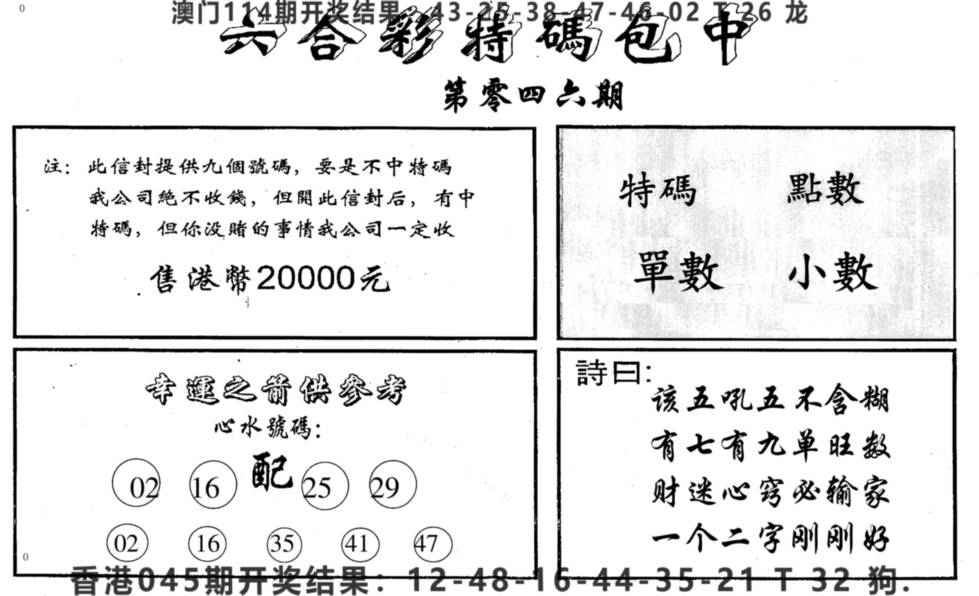 0
澳门114期开奖结果：43-25-38-47-46-02 T 26 龙
六合彩特碼包中
第零四六期
注：此信封提供九個號碼，要是不中特碼
我公司絶不收錢，但開此信封后，有中
特碼，但你没賭的事情我公司一定收
售港幣20000元
特碼 點數
單數 小數
幸運之前供參考
心水號碼：
配
02 16 25 29
02 16 35 41 47
0
詩曰:
该五吼五不含糊
有七有九单旺数
财迷心窍必输家
一个二字刚刚好
香港045期开奖结果：12-48-16-44-35-21 T 32 狗.